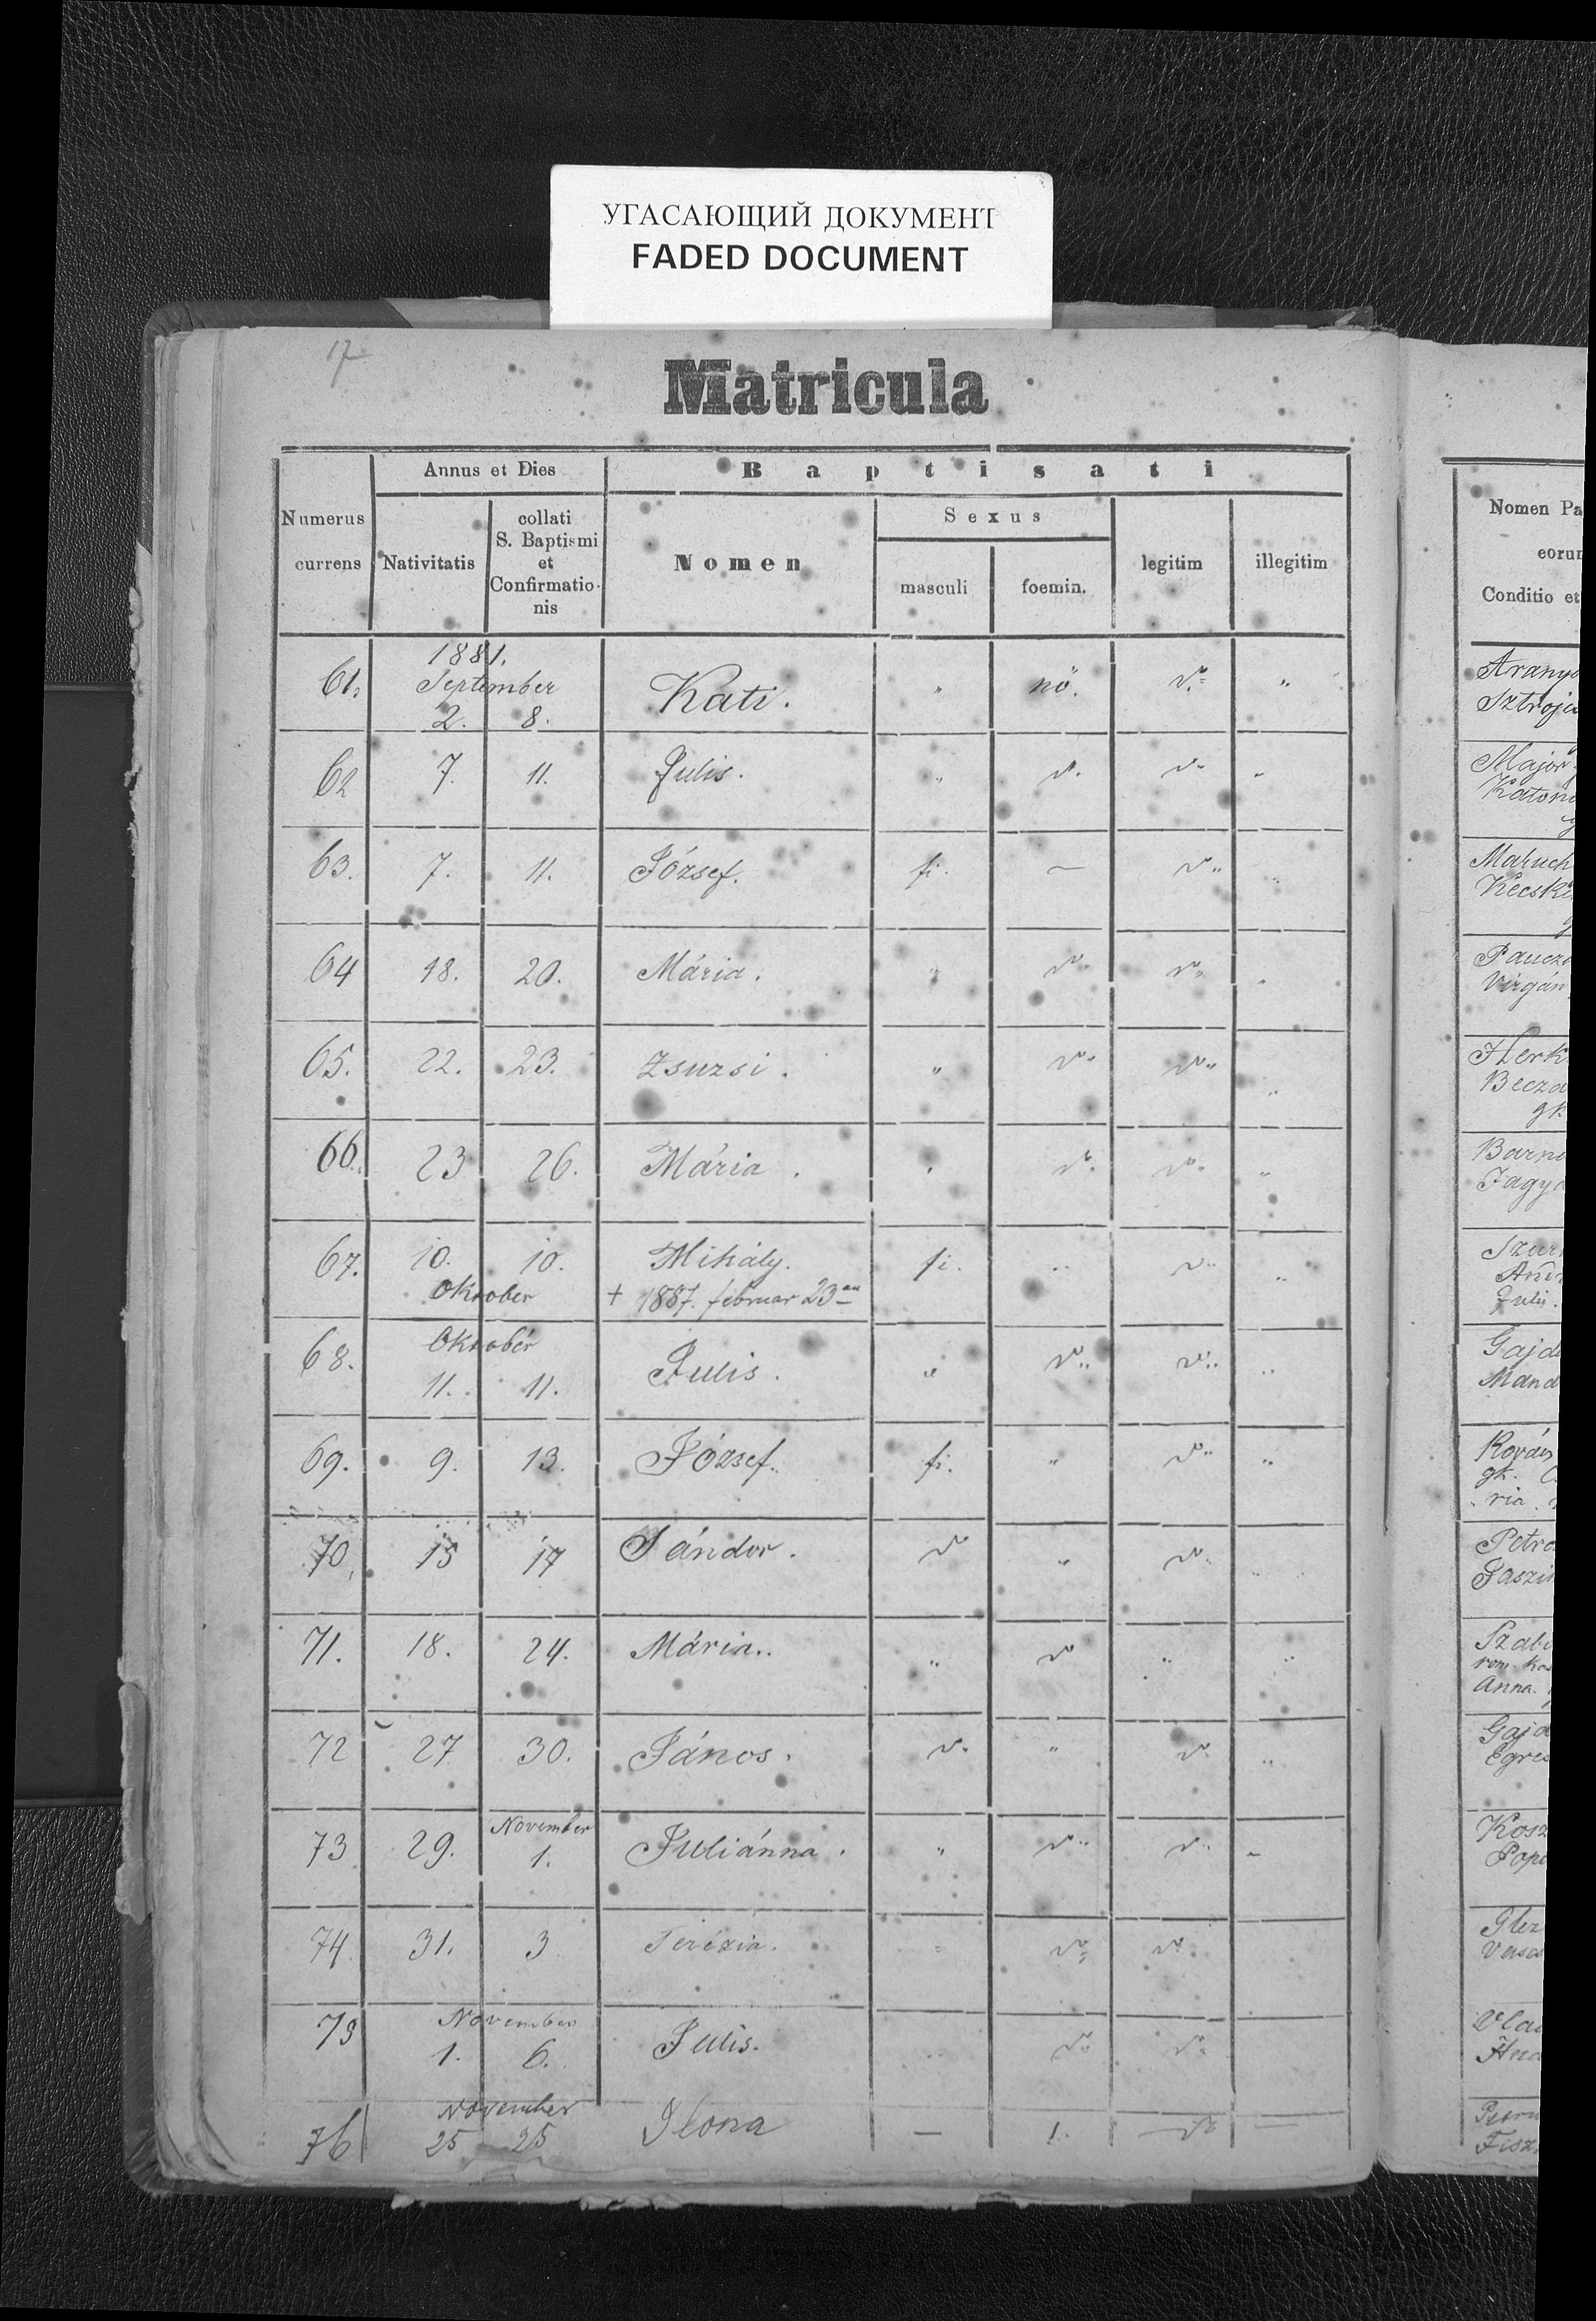 УГАСАЮЩИЙ ДОКУМЕНТ
FADED DOCUMENT
17
Matricula
Numerus currens
Annus et Dies
Nativitatis
collati S. Baptismi et Confirmatio- nis
Baptisati
Nomen
Sexus
masculi
foemin.
legitim
illegitim
Nomen Pa
eorum
Conditio et
1881.
61. September 2. 8. Kati. " nő. v. "
62 7. 11. Julis. " v. v. "
63. 7. 11. József. fi. — v. "
64 18. 20. Mária. " v. v. "
65. 22. 23. Zsuzsi. " v. v. "
66. 23 26. Mária. " v. v. "
67. 10. 10. Mihály. fi. " v. "
Oktober + 1887. februar 23án
68. Oktober 11. 11. Julis. " v. v. "
69. 9. 13. József. fi. " v. "
70. 15 17 Sándor. v " v. "
71. 18. 24. Mária. " v " "
72 27 30. János. v. " v. "
73 29. November 1. Juliánna. " v. v. "
74. 31. 3 Terézia. " v. v.
75 November 1. 6. Julis. " v. v.
76 November 25 25 Ilona — 1. v —
Arany
Sztroja
Major
Katona
Maruch
Kecské
Pancz
Virgán
Herk
Becza
gk.
Barn
Jagy
Szur
And
Julis.
Gajd
Mand
Kovács
gk.
ria.
Petr
Jaszi
Szab
rom. ka
Anna.
Gajd
Egres
Kosz
Pop
Glez
Vasas
Vla
Petru
Fisz